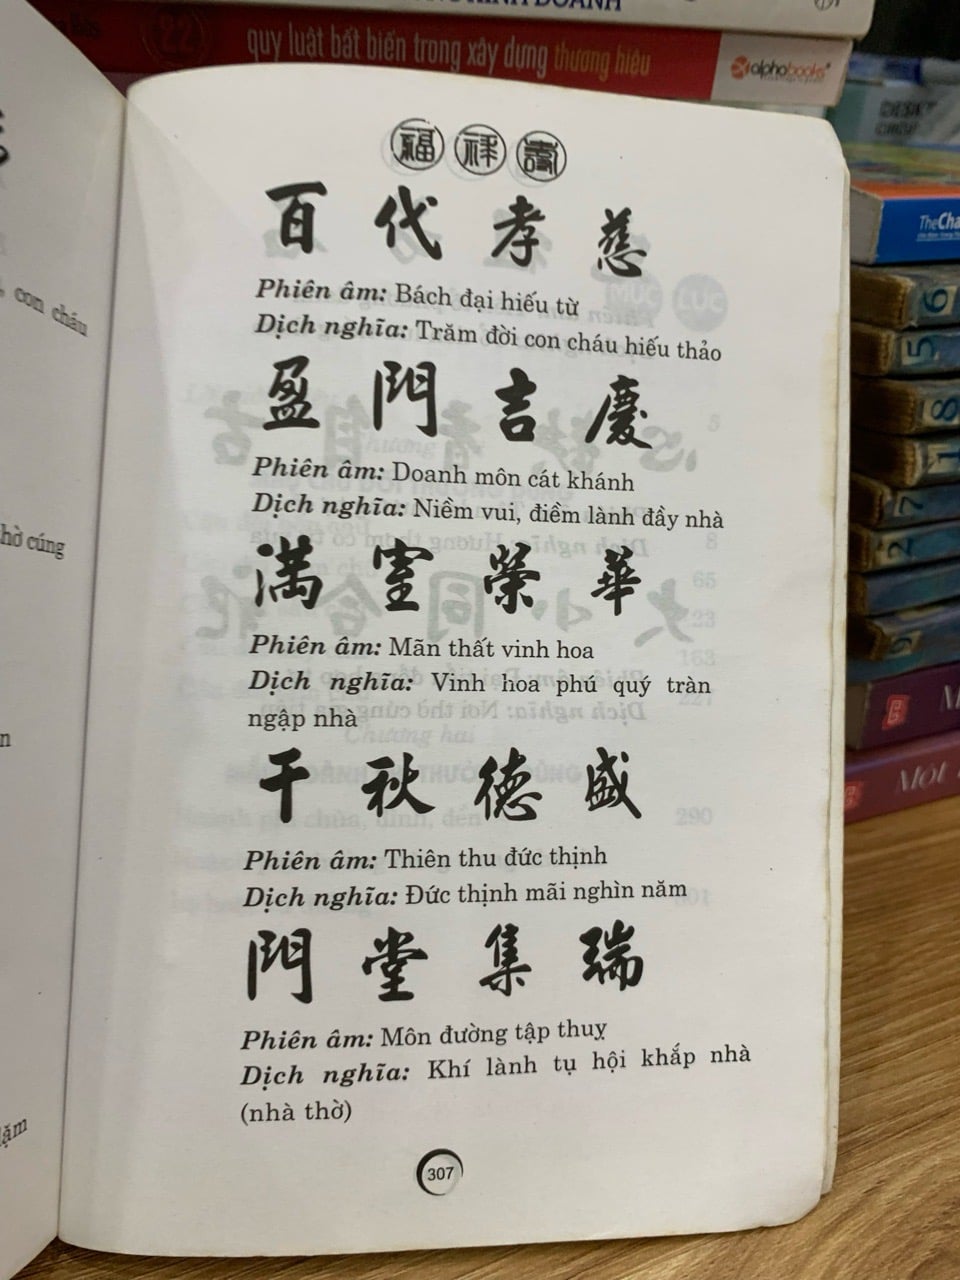 quy luật bất biến trong xây dựng thương hiệu
alphabooks
22
TheCha
, con cháu
hờ cúng
福 祿 壽
百代孝慈
Phiên âm: Bách đại hiếu từ
Dịch nghĩa: Trăm đời con cháu hiếu thảo
盈門吉慶
Phiên âm: Doanh môn cát khánh
Dịch nghĩa: Niềm vui, điềm lành đầy nhà
满室榮華
Phiên âm: Mãn thất vinh hoa
Dịch nghĩa: Vinh hoa phú quý tràn
ngập nhà
千秋德盛
Phiên âm: Thiên thu đức thịnh
Dịch nghĩa: Đức thịnh mãi nghìn năm
門堂集瑞
Phiên âm: Môn đường tập thuỵ
Dịch nghĩa: Khí lành tụ hội khắp nhà
(nhà thờ)
307
6
5
8
1
7
2
9
MỘT